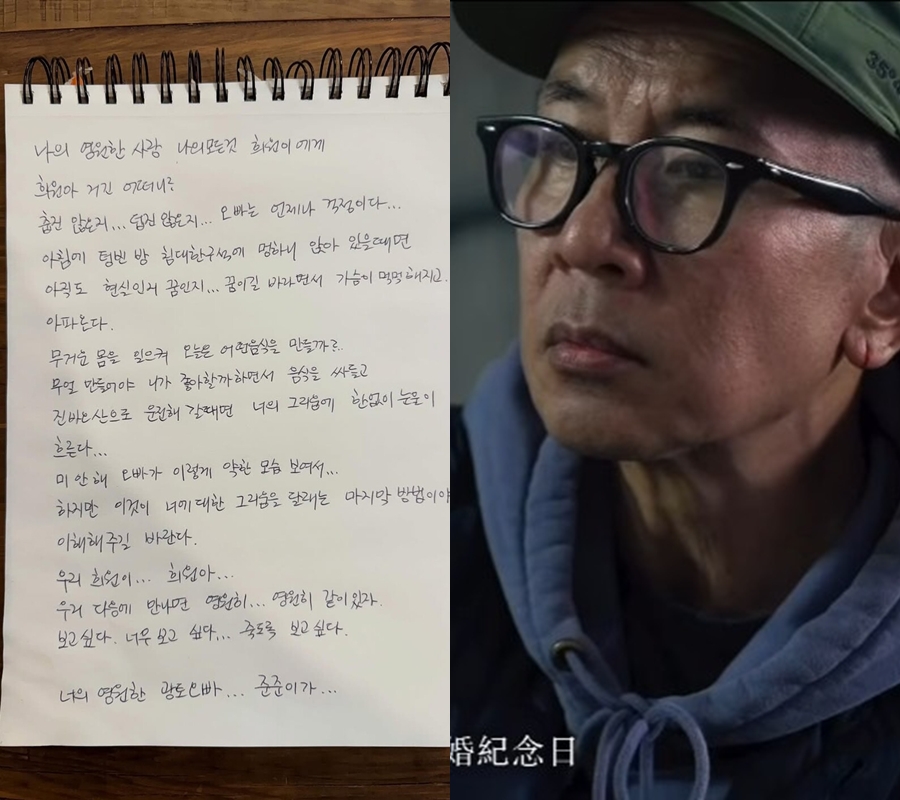 나의 영원한 사랑 나의모든것 희원이에게
희원아 거긴 어떠니?
춥진 않은지... 덥진 않은지... 오빠는 언제나 걱정이다...
아침에 텅빈 방 침대한구석에 멍하니 앉아 있을때면
아직도 현실인지 꿈인지... 꿈이길 바라면서 가슴이 먹먹해지고.
아파온다.
무거운 몸을 일으켜 오늘은 어떤음식을 만들까?..
무얼 만들어야 니가 좋아할까하면서 음식을 싸들고
진바오산으로 운전해 갈때면 너의 그리움에 한없이 눈물이
흐른다...
미안해 오빠가 이렇게 약한 모습 보여서...
하지만 이것이 너에대한 그리움을 달래는 마지막 방법이야
이해해주길 바란다.
우리 희원이... 희원아...
우리 다음에 만나면 영원히... 영원히 같이있자.
보고싶다. 너무 보고 싶다... 죽도록 보고싶다.
너의 영원한 광토오빠... 준준이가...
35°
婚紀念日